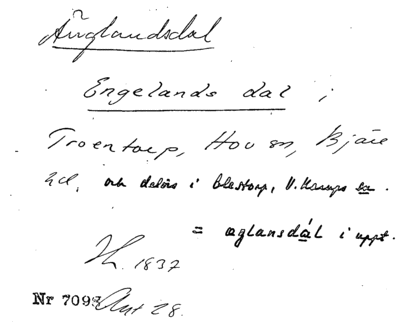 Änglandsdal
Engelands dal i
Troentorp, Hov sn, Bjäre
hd, och delvis i Glestorp, V. Karups sn.
= æglansdál i uppt.
1837
Nr 7093 Ant 28.